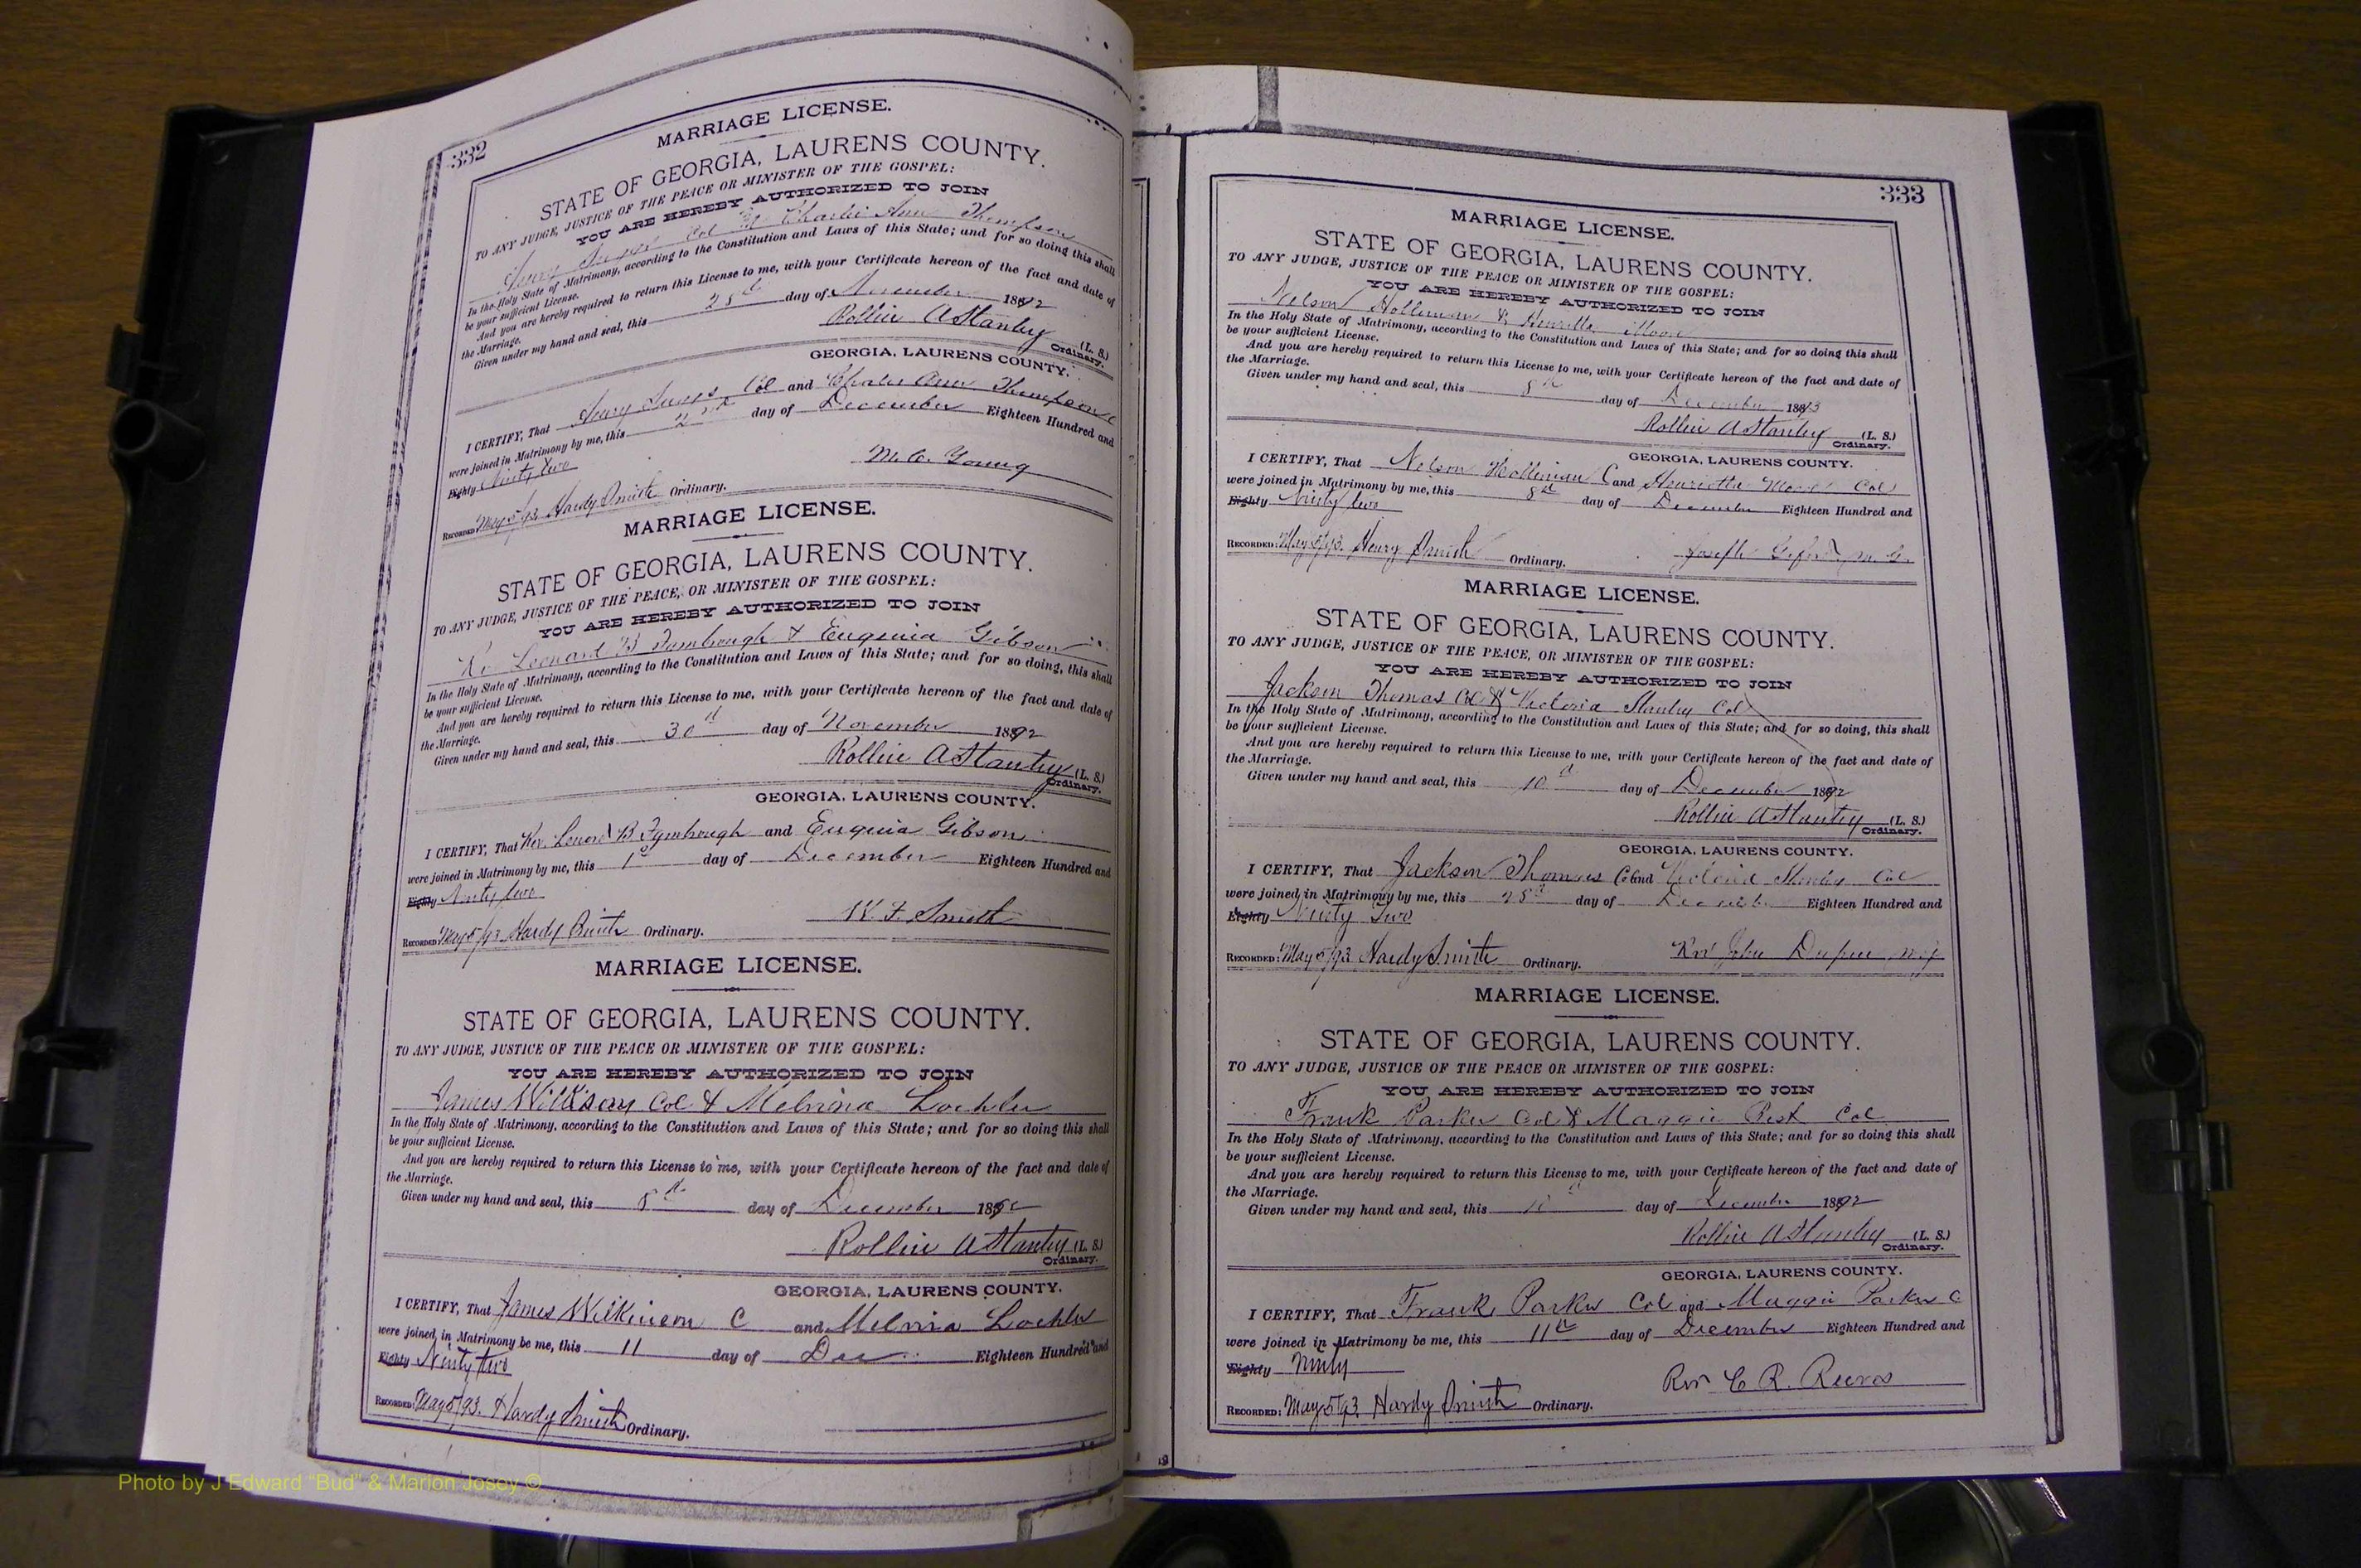 332
MARRIAGE LICENSE.
STATE OF GEORGIA, LAURENS COUNTY.
TO ANY JUDGE, JUSTICE OF THE PEACE OR MINISTER OF THE GOSPEL:
YOU ARE HEREBY AUTHORIZED TO JOIN
Col & Charlie Ann Thompson
In the Holy State of Matrimony, according to the Constitution and Laws of this State; and for so doing this shall
be your sufficient License.
And you are hereby required to return this License to me, with your Certificate hereon of the fact and date of
the Marriage.
Given under my hand and seal, this 28th day of November 1892
Rollin A Stanley (L. S.)
Ordinary.
GEORGIA, LAURENS COUNTY.
I CERTIFY, That Col and Charlie Ann Thompson
were joined in Matrimony by me, this 2nd day of December Eighteen Hundred and
Eighty Ninty two
M. C. Young
RECORDED: May 5/93 Hardy Smith Ordinary.
MARRIAGE LICENSE.
STATE OF GEORGIA, LAURENS COUNTY.
TO ANY JUDGE, JUSTICE OF THE PEACE, OR MINISTER OF THE GOSPEL:
YOU ARE HEREBY AUTHORIZED TO JOIN
Leonard B & Eugenia Gibson
In the Holy State of Matrimony, according to the Constitution and Laws of this State; and for so doing, this shall
be your sufficient License.
And you are hereby required to return this License to me, with your Certificate hereon of the fact and date of
the Marriage.
Given under my hand and seal, this 30th day of November 1892
Rollin A Stanley (L. S.)
Ordinary.
GEORGIA, LAURENS COUNTY.
I CERTIFY, That Rev. B and Eugenia Gibson
were joined in Matrimony by me, this 1st day of December Eighteen Hundred and
Eighty Ninty two
W. F. Smith
RECORDED: May 5/93 Hardy Smith Ordinary.
MARRIAGE LICENSE.
STATE OF GEORGIA, LAURENS COUNTY.
TO ANY JUDGE, JUSTICE OF THE PEACE OR MINISTER OF THE GOSPEL:
YOU ARE HEREBY AUTHORIZED TO JOIN
James Col & Melvina
In the Holy State of Matrimony, according to the Constitution and Laws of this State; and for so doing this shall
be your sufficient License.
And you are hereby required to return this License to me, with your Certificate hereon of the fact and date of
the Marriage.
Given under my hand and seal, this 8th day of December 189
Rollin A Stanley (L. S.)
Ordinary.
GEORGIA, LAURENS COUNTY.
I CERTIFY, That James Wilkinson C and
were joined in Matrimony be me, this 11 day of Dec Eighteen Hundred and
Eighty Ninty two
RECORDED: May 5/93. Hardy Smith Ordinary.
333
MARRIAGE LICENSE.
STATE OF GEORGIA, LAURENS COUNTY.
TO ANY JUDGE, JUSTICE OF THE PEACE OR MINISTER OF THE GOSPEL:
YOU ARE HEREBY AUTHORIZED TO JOIN
Nelson Holliman & Henrietta Moore
In the Holy State of Matrimony, according to the Constitution and Laws of this State; and for so doing this shall
be your sufficient License.
And you are hereby required to return this License to me, with your Certificate hereon of the fact and date of
the Marriage.
Given under my hand and seal, this 8th day of December 1893
Rollin A Stanley (L. S.)
Ordinary.
GEORGIA, LAURENS COUNTY.
I CERTIFY, That Nelson Holliman C and Henrietta Col
were joined in Matrimony by me, this 8th day of December Eighteen Hundred and
Eighty Ninty two
RECORDED: May 5/93. Smith Ordinary. Joseph M. G.
MARRIAGE LICENSE.
STATE OF GEORGIA, LAURENS COUNTY.
TO ANY JUDGE, JUSTICE OF THE PEACE, OR MINISTER OF THE GOSPEL:
YOU ARE HEREBY AUTHORIZED TO JOIN
Jackson Thomas Col & Victoria Stanley Col
In the Holy State of Matrimony, according to the Constitution and Laws of this State; and for so doing, this shall
be your sufficient License.
And you are hereby required to return this License to me, with your Certificate hereon of the fact and date of
the Marriage.
Given under my hand and seal, this 10th day of December 1892
Rollin A Stanley (L. S.)
Ordinary.
GEORGIA, LAURENS COUNTY.
I CERTIFY, That Jackson Thomas Col and Victoria Stanley Col
were joined in Matrimony by me, this 28th day of Eighteen Hundred and
Eighty Ninty Two
RECORDED: May 5/93 Hardy Smith Ordinary. Rev John Dupree M. G.
MARRIAGE LICENSE.
STATE OF GEORGIA, LAURENS COUNTY.
TO ANY JUDGE, JUSTICE OF THE PEACE OR MINISTER OF THE GOSPEL:
YOU ARE HEREBY AUTHORIZED TO JOIN
Frank Parker Col & Maggie Col
In the Holy State of Matrimony, according to the Constitution and Laws of this State; and for so doing this shall
be your sufficient License.
And you are hereby required to return this License to me, with your Certificate hereon of the fact and date of
the Marriage.
Given under my hand and seal, this day of December 1892
Rollin A Stanley (L. S.)
Ordinary.
GEORGIA, LAURENS COUNTY.
I CERTIFY, That Frank Parker Col and Maggie Parker C
were joined in Matrimony be me, this 11th day of December Eighteen Hundred and
Eighty Ninty
Rev C. R. Reeves
RECORDED: May 5/93 Hardy Smith Ordinary.
Photo by J Edward "Bud" & Marion Josey ©